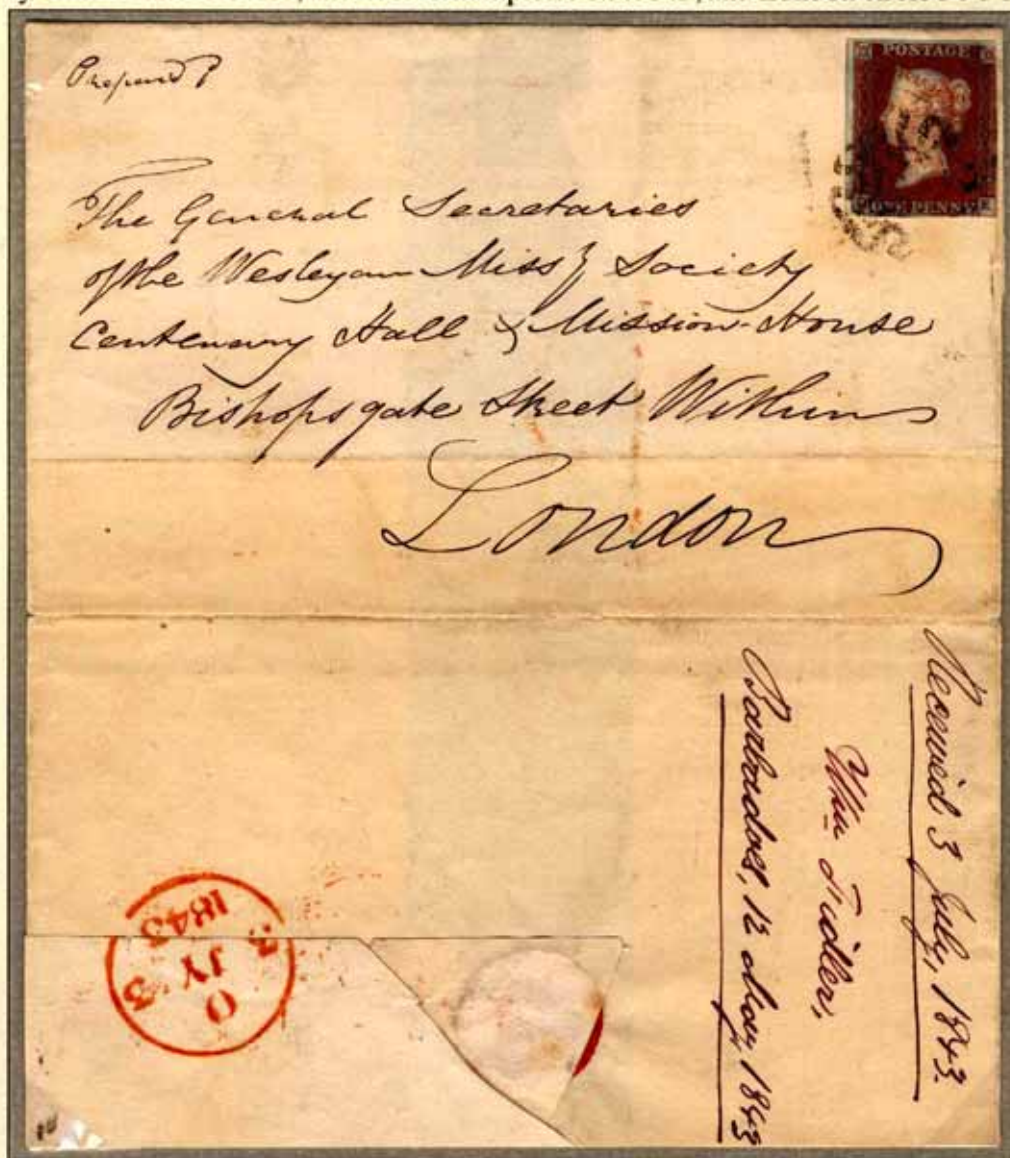 POSTAGE
ONE PENNY
The General Secretaries
of the Wesleyan Miss.y Society
Centenary Hall & Mission-House
Bishopsgate Street Within
London
Received 3 July, 1843.
Wm Fidler,
Barbadoes, 12 May, 1843
O
3 JY 3
1843